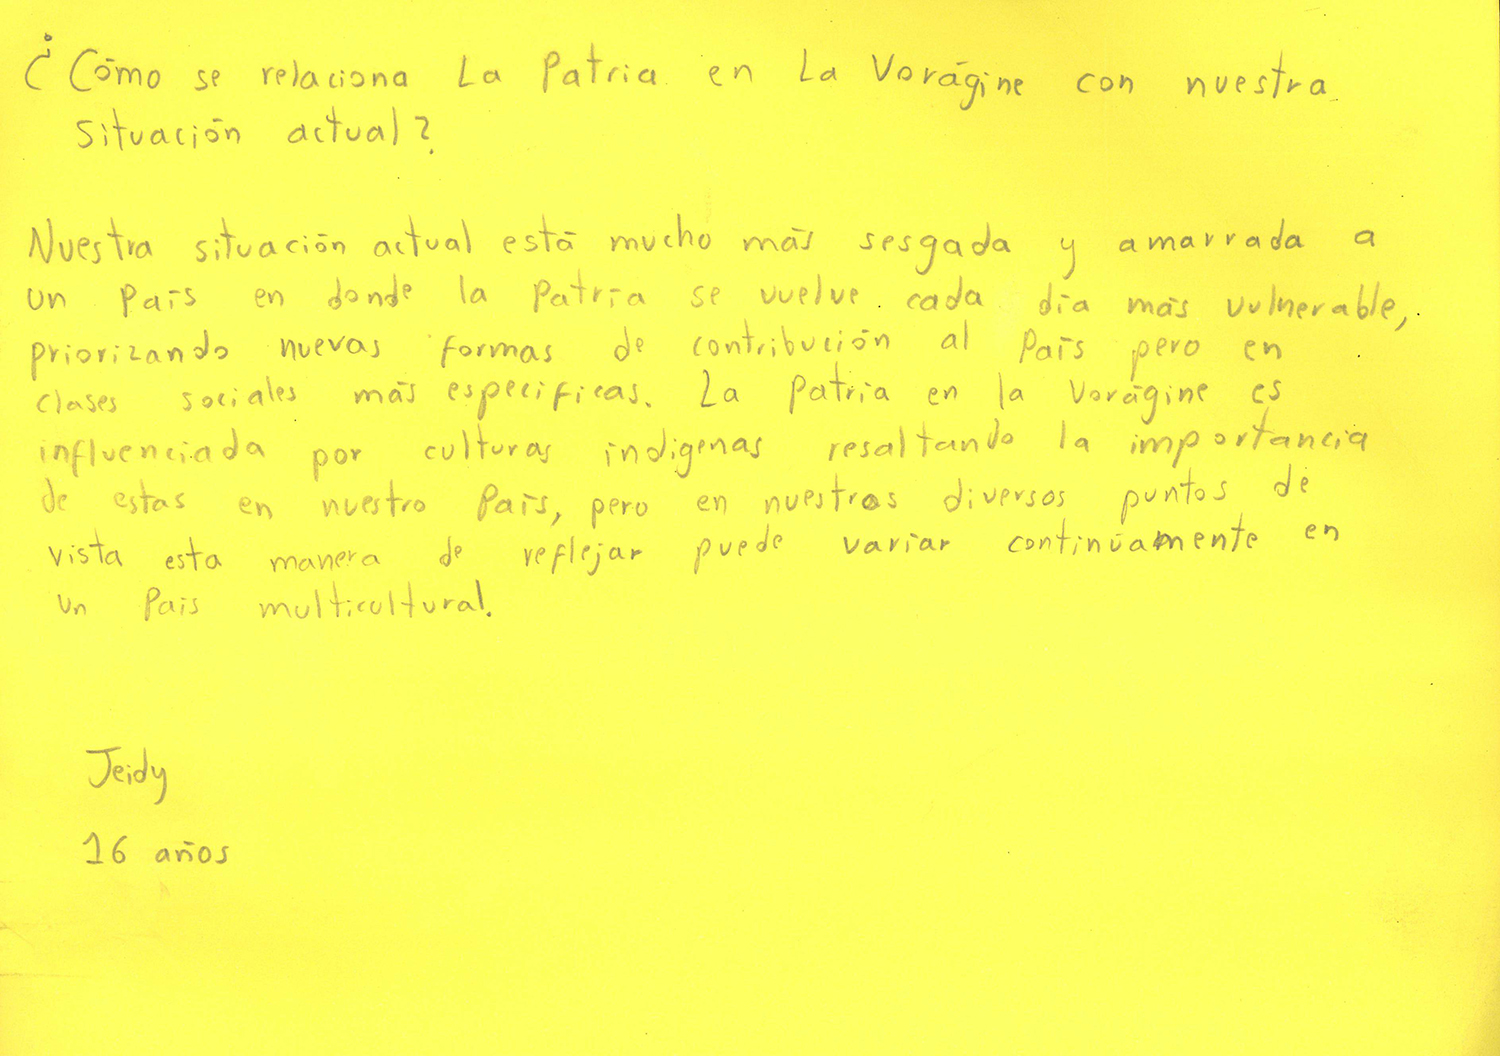 ¿Cómo se relaciona La Patria en La Vorágine con nuestra
situación actual?
Nuestra situación actual está mucho más sesgada y amarrada a
un País en donde la Patria se vuelve cada día más vulnerable,
priorizando nuevas formas de contribución al País pero en
clases sociales más especificas. La Patria en la Vorágine es
influenciada por culturas indigenas resaltando la importancia
de estas en nuestro País, pero en nuestros diversos puntos de
vista esta manera de reflejar puede variar continúamente en
un País multicultural.
Jeidy
16 años